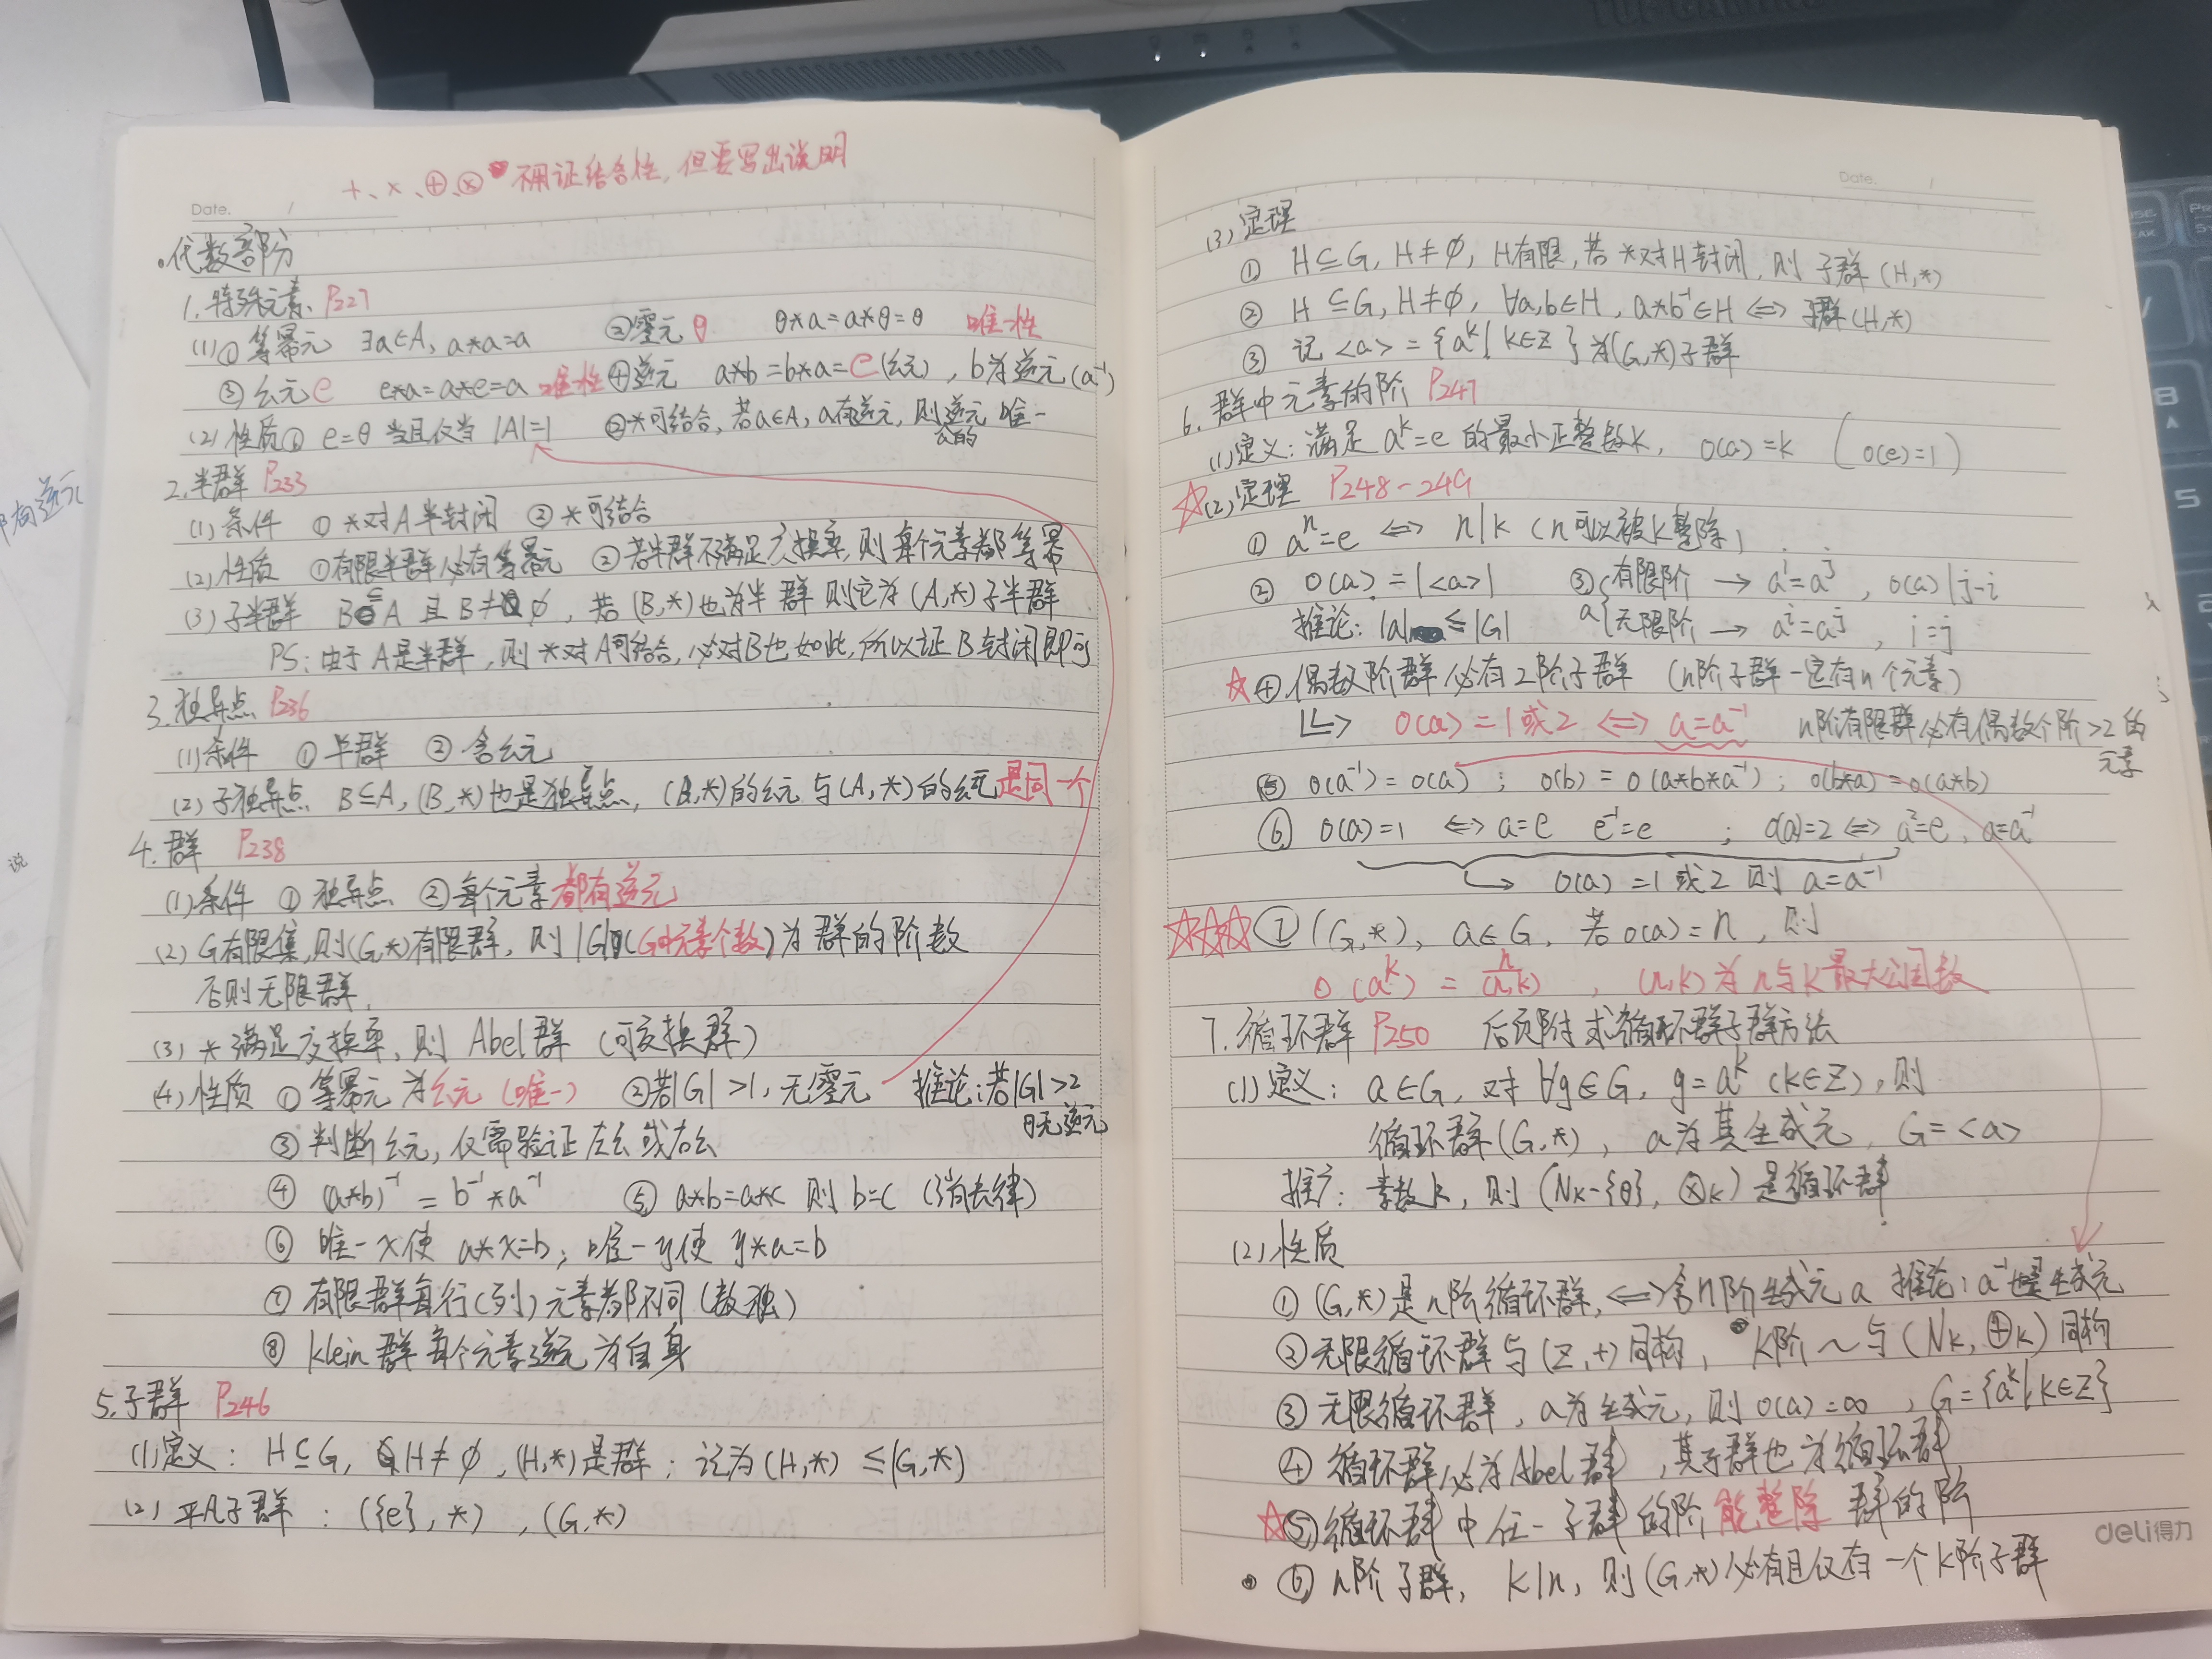 +、×、⊕、⊗ 不用证结合性,但要写出说明
Date. /
·代数部分
1.特殊元素 P227
(1)① 等幂元 ∃a∈A, a*a=a ②零元 θ θ*a=a*θ=θ 唯一性
③ 幺元e e*a=a*e=a 唯一性 ④逆元 a*b=b*a=e(幺元), b为逆元(a⁻¹)
(2)性质① e=θ 当且仅当 |A|=1 ②*可结合,若a∈A, a有逆元,则逆元唯一
2.半群 P233
(1)条件 ① *对A半封闭 ② *可结合
(2)性质 ①有限半群必有等幂元 ②若半群不满足交换率,则每个元素都等幂
(3)子半群 B⊆A 且 B≠∅, 若(B,*)也为半群 则它为(A,*)子半群
PS:由于A是半群,则*对A可结合,必对B也如此,所以证B封闭即可
3.独异点 P236
(1)条件 ① 半群 ② 含幺元
(2)子独异点 B⊆A, (B,*)也是独异点, (B,*)的幺元与(A,*)的幺元是同一个
4.群 P238
(1)条件 ① 独异点 ②每个元素都有逆元
(2) G有限集,则(G,*)有限群,则|G|(G中元素个数)为群的阶数
否则无限群.
(3) *满足交换率,则 Abel群 (可交换群)
(4)性质 ① 等幂元为幺元(唯一) ②若|G|>1,无零元 推论:若|G|>2
θ无逆元
③ 判断幺元,仅需验证左幺或右幺
④ (a*b)⁻¹ = b⁻¹*a⁻¹ ⑤ a*b=a*c 则 b=c (消去律)
⑥ 唯一x使 a*x=b; 唯一y使 y*a=b
⑦ 有限群每行(列)元素都不同(数独)
⑧ klein群每个元素逆元为自身
5.子群 P246
(1)定义: H⊆G, H≠∅,(H,*)是群; 记为(H,*) ≤(G,*)
(2) 平凡子群: ({e},*) , (G,*)
Date. /
(3)定理
① H⊆G, H≠∅, H有限,若*对H封闭,则 子群(H,*)
② H⊆G, H≠∅, ∀a,b∈H, a*b⁻¹∈H ⇔ 子群(H,*)
③ 记<a> = {aᵏ| k∈Z}为(G,*)子群
6.群中元素的阶 P247
(1)定义:满足 aᵏ=e 的最小正整数k, o(a)=k (o(e)=1)
☆(2)定理 P248-249
① aⁿ=e ⇔ n|k (n可以被k整除)
② o(a)=|<a>| ③ 有限阶 → aⁱ=aʲ, o(a)|j-i
推论: |a| ≤|G| a{无限阶 → aⁱ=aʲ, i=j
☆④偶数阶群必有2阶子群 (n阶子群一定有n个元素)
↳ o(a)=1或2 ⇔ a=a⁻¹ n阶有限群必有偶数个阶>2的
元素
⑤ o(a⁻¹)=o(a) ; o(b)=o(a*b*a⁻¹); o(b*a)=o(a*b)
⑥ o(a)=1 ⇔ a=e e⁻¹=e ; o(a)=2 ⇔ a²=e, a=a⁻¹
→ o(a)=1或2 则 a=a⁻¹
☆☆☆⑦ (G,*), a∈G, 若o(a)=n, 则
o(aᵏ) = n/(n,k) , (n,k)为n与k最大公因数
7.循环群 P250 后页附求循环群子群方法
(1)定义: a∈G, 对∀g∈G, g=aᵏ(k∈Z),则
循环群(G,*), a为其生成元, G=<a>
推广: 素数k, 则 (Nk-{θ}, ⊗k) 是循环群
(2)性质
① (G,*)是n阶循环群, ⇔ 含n阶生成元a 推论: a⁻¹也是生成元
②无限循环群与(Z,+)同构, k阶~与(Nk,⊕k)同构
③ 无限循环群, a为生成元,则 o(a)=∞, G={aᵏ|k∈Z}
④ 循环群必为Abel群,其子群也为循环群
☆⑤循环群中任一子群的阶能整除群的阶
·⑥ n阶子群, k|n, 则(G,*)必有且仅有一个k阶子群
deli得力